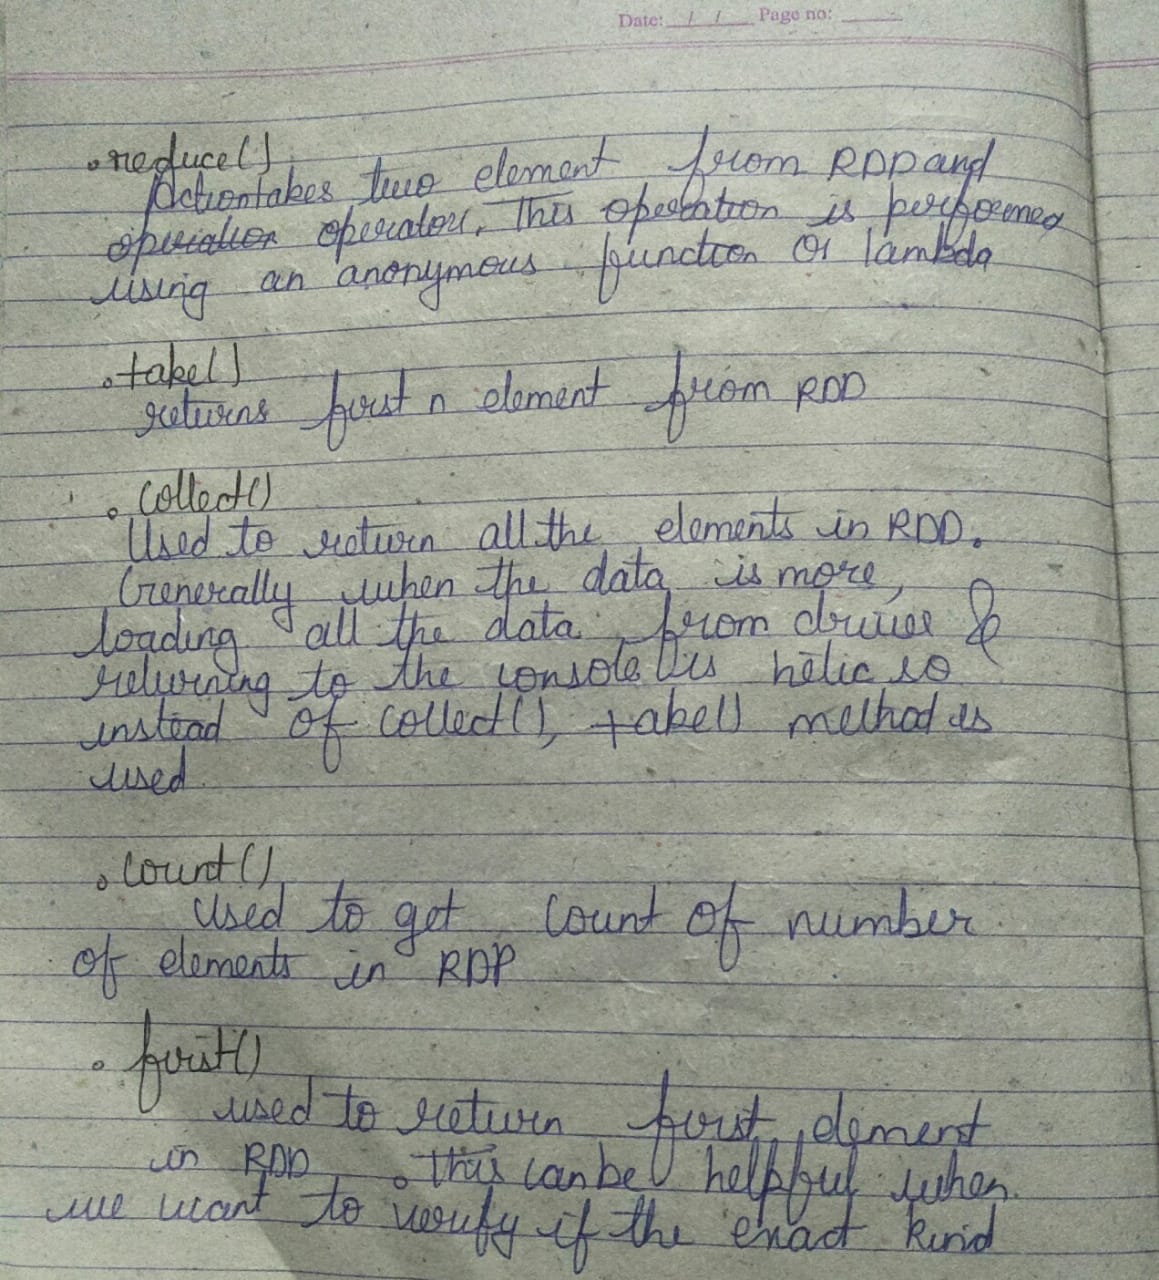 Date: / / Page no:
• reduce()
Action takes two element from RDD and
operation operator. This operation is performed
using an anonymous function or lambda
• take()
returns first n element from RDD
• collect()
Used to return all the elements in RDD.
Generally when the data is more,
loading all the data from driver &
returning to the console is hetic so
instead of collect(), take() method is
used
• count()
used to get count of number
of elements in RDD
• first()
used to return first element
in RDD. this can be helpful when
we want to verify if the exact kind